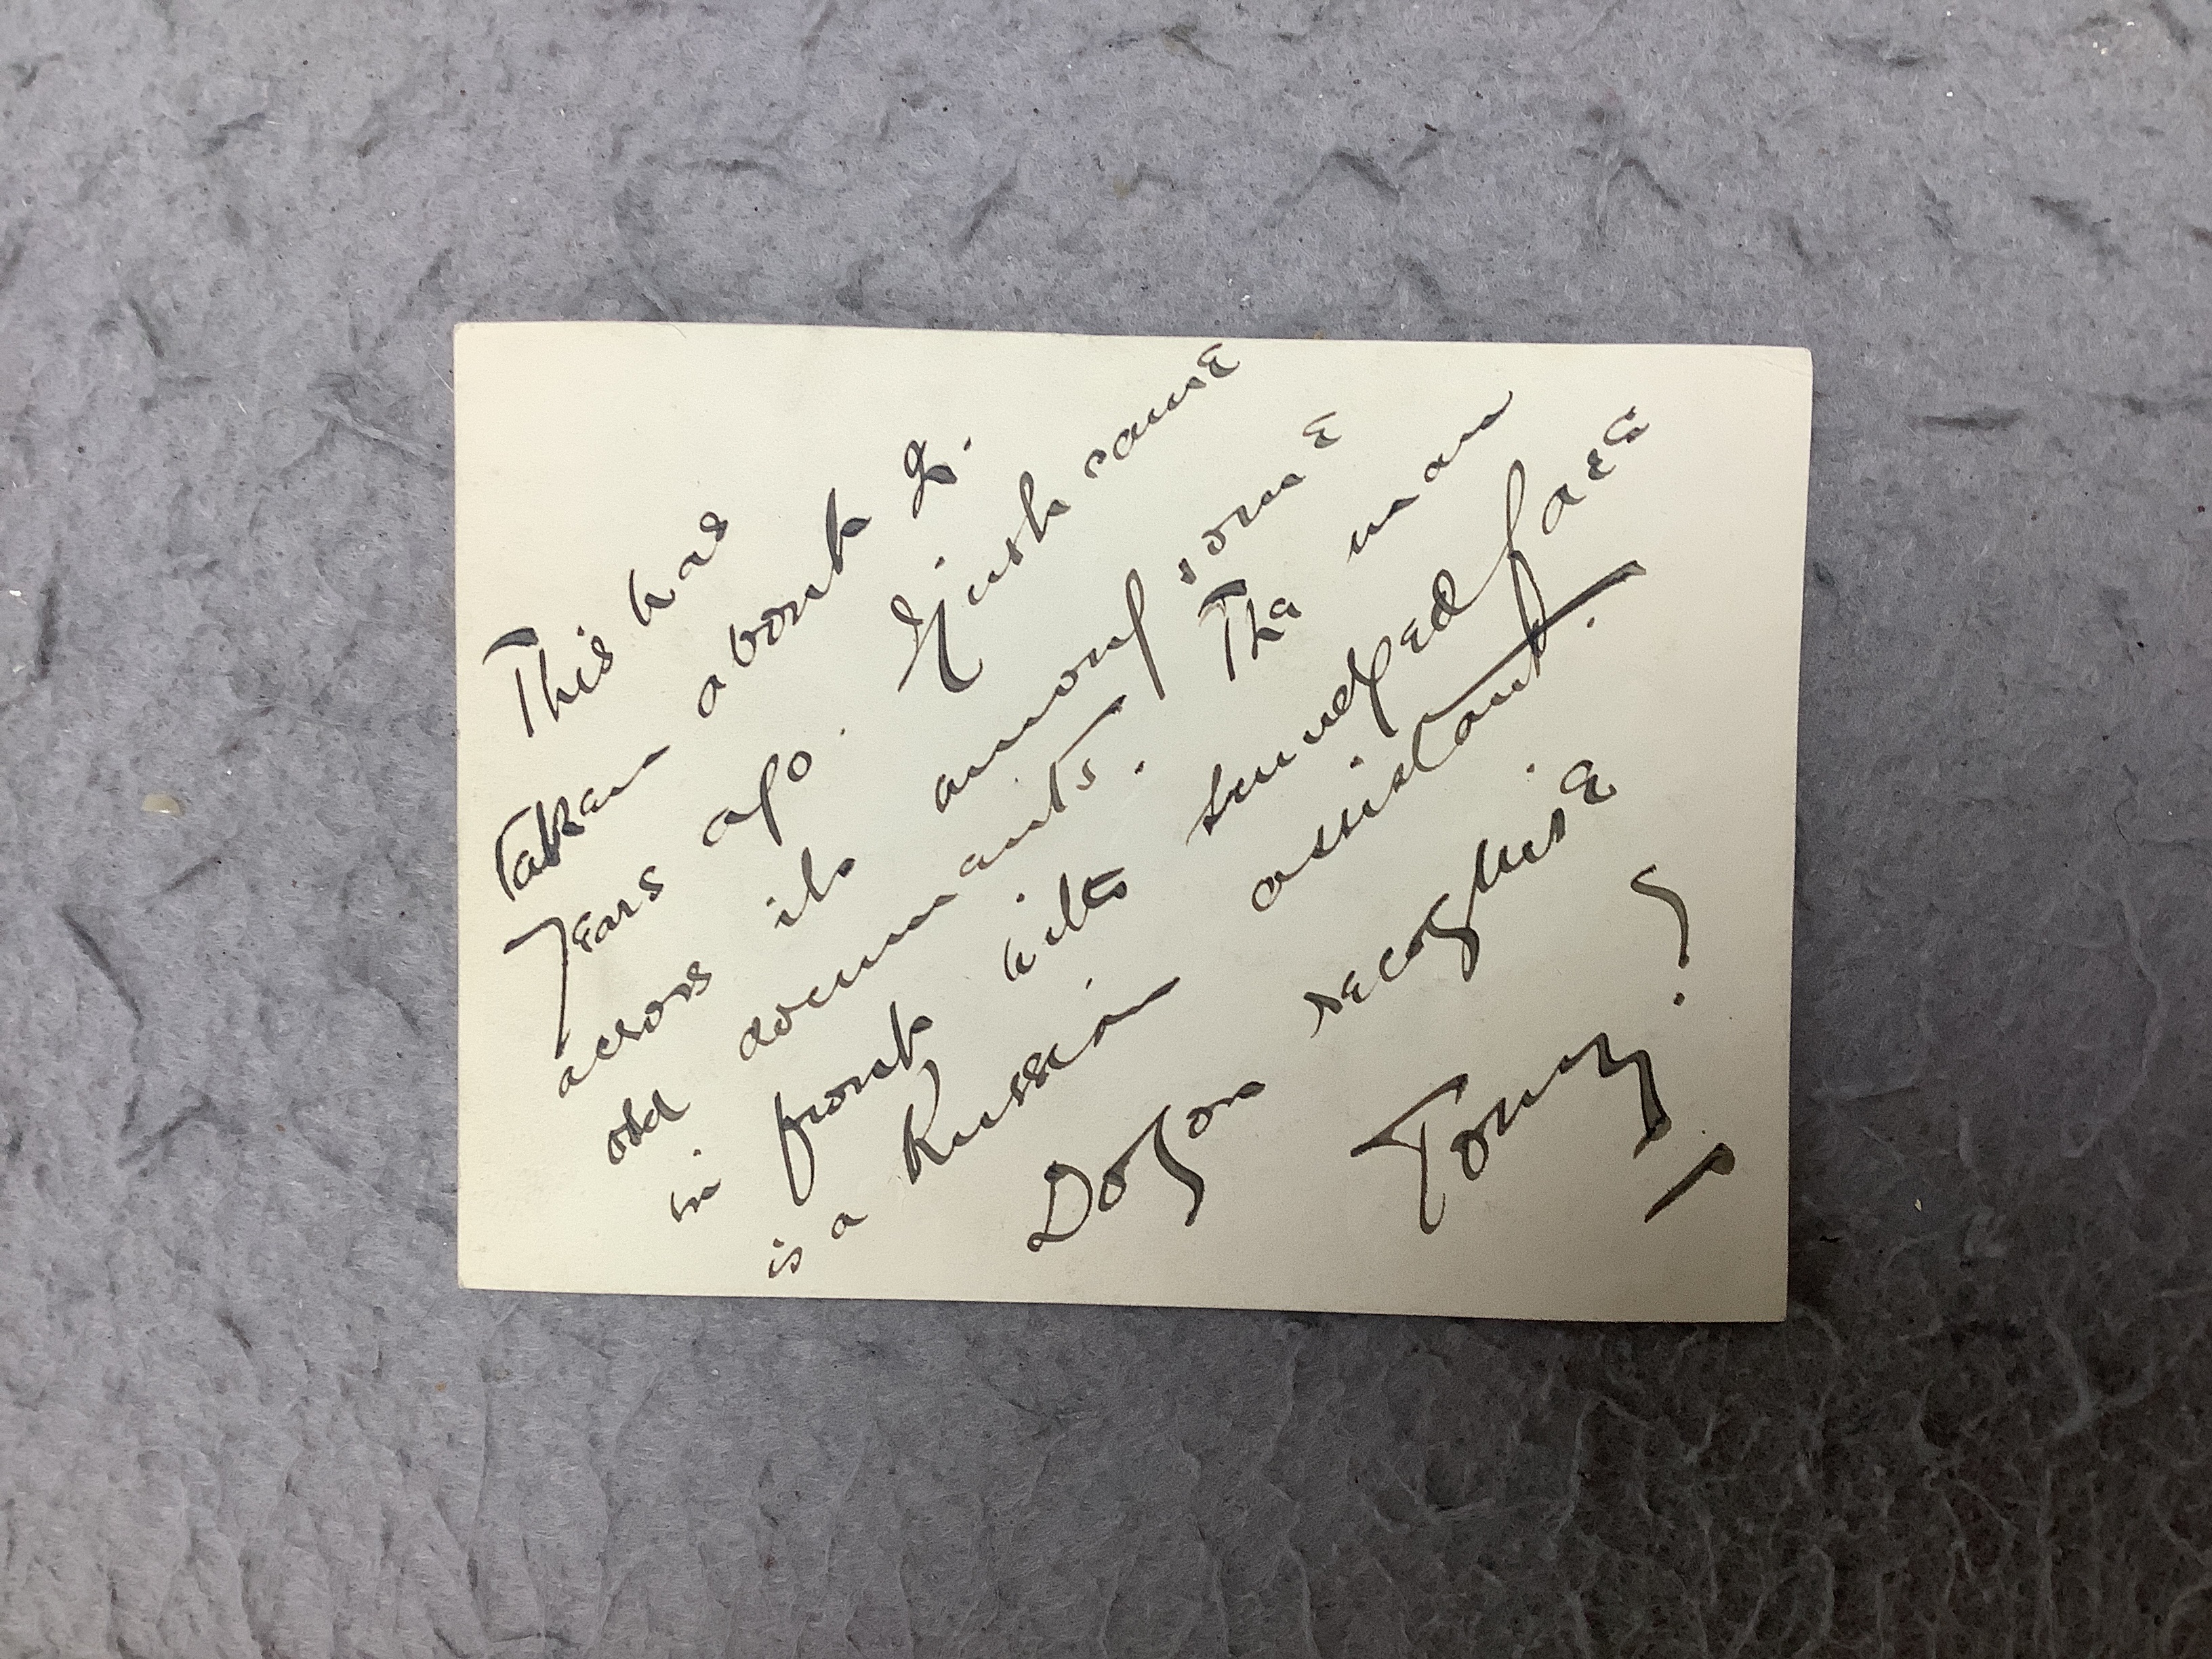 This was
taken about 2.
years ago. I just came
across it among some
old documents. The man
in front with smudged face
is a Russian assistant.
Do you recognise
Tony?